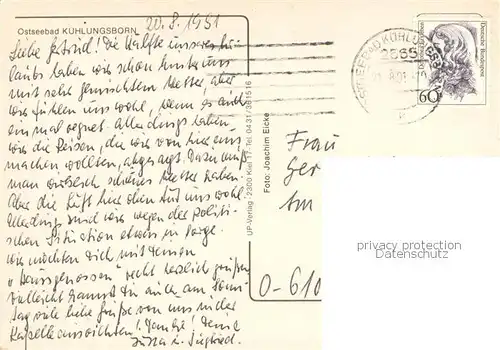 Ostseebad KÜHLUNGSBORN
20.8.1991
Liebe Gertrud! Die Hälfte unseres Ur-
laubs haben wir schon hinter uns
mit sehr gemischtem Wetter, aber
wir fühlen uns wohl, wenn es auch
einmal regnet. Allerdings haben
wir die Reisen, die wir von hier aus
machen wollten, abgesagt. Dazu muß
man wirklich schönes Wetter haben.
Aber die Luft hier oben tut uns wohl.
Allerdings sind wir wegen der politi-
schen Situation etwas in Sorge.
Wir möchten Dich mit Deinen
"Hausgenossen" recht herzlich grüßen.
Vielleicht kannst Du auch am Sonn-
tag viele liebe Grüße von uns in der
Kapelle ausrichten! Danke! Deine
Jutta u. Siegfried.
UP-Verlag · 2300 Kiel 17 · Tel. 0431/
Foto: Joachim Eicke
OSTSEEBAD KÜHLUNGSBORN
2565
Deutsche Bundespost
60
Frau
Ger
Am
O-610
privacy protection
Datenschutz